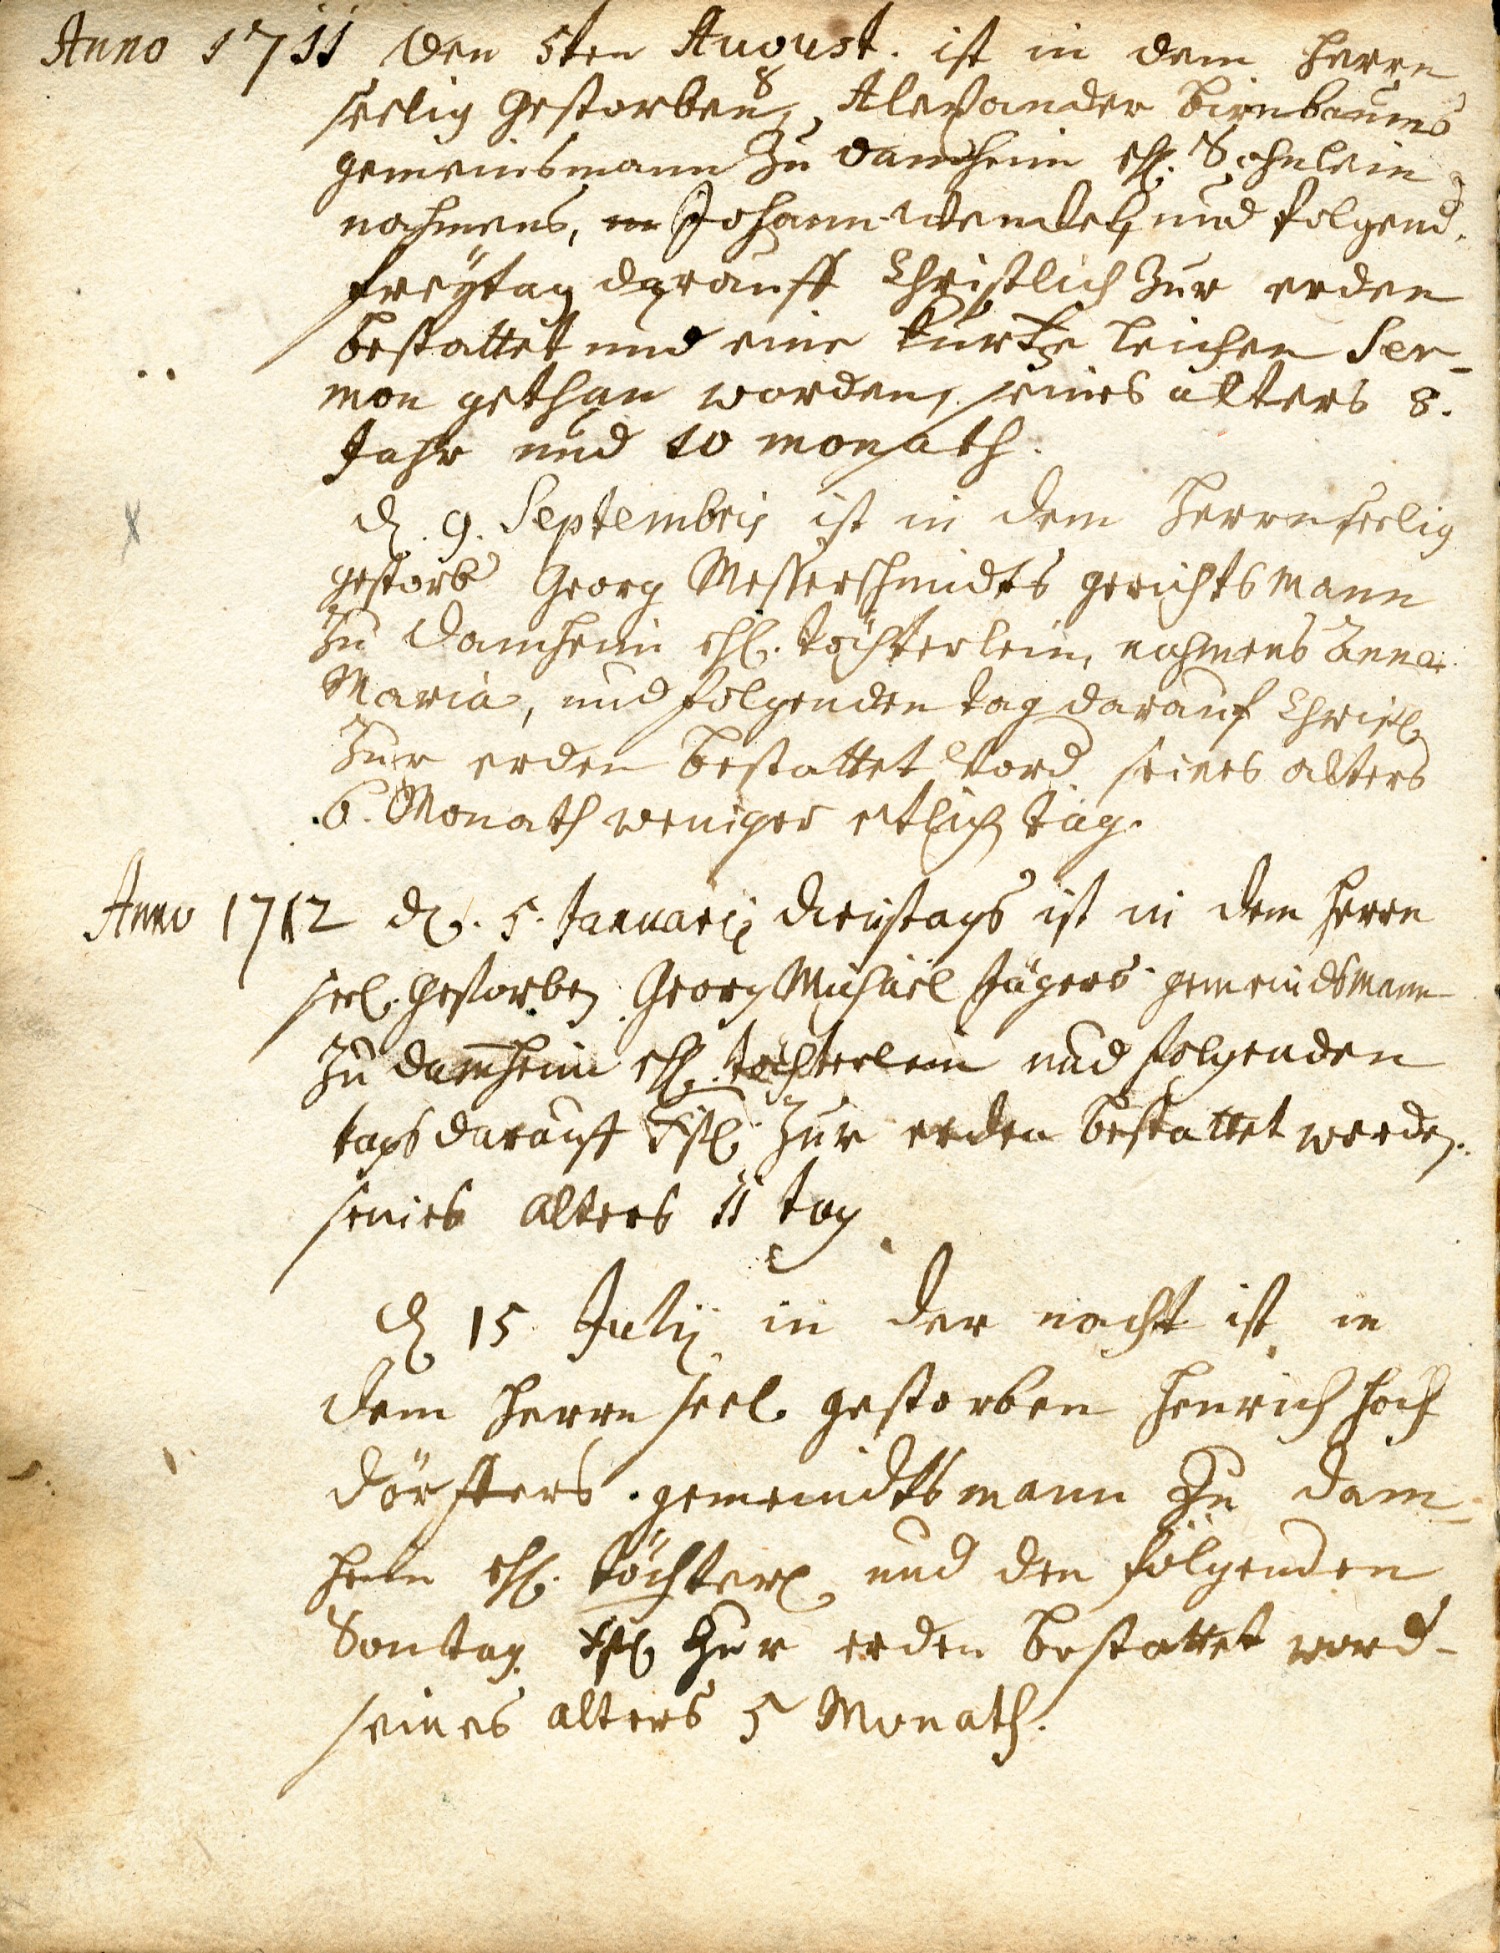 Anno 1711 Den 5ten August. ist in dem Herrn
seelig Gestorben, Alexander Birnbaums
gemeinsmann zu Damheim ehl. Söhnlein
nahmens, Johann Wendel, und folgend.
freÿtag darauff Christlich zur erden
bestattet und eine kurtze leichen Ser-
mon gethan worden, seines alters 8.
Jahr und 10 monath.
d. 9. Septembris ist in dem Herrn seelig
gestorb Georg Messerschmidts gerichtsmann
zu Damheim ehl. töchterlein, nahmens Anna
Maria, und folgenden tag darauf Christl.
zur erden bestattet word seines alters
6. Monath weniger etlich täg.
Anno 1712 d. 5. Januarij dienstags ist in dem Herrn
seel. gestorben Georg Michäel Jägers gemeindsmann
zu damheim ehl. töchterlein und folgenden
tags darauff Xstl. zur erden bestattet worden.
seines alters 11 tag
d 15 Julij in der nacht ist in
dem Herrn seel. gestorben Henrich Hoch
dörffers gemeindtsmann zu Dam-
heim ehl. töchterl und den folgenden
Sontag Xstl zur erden bestattet word-
seines alters 5 Monath.